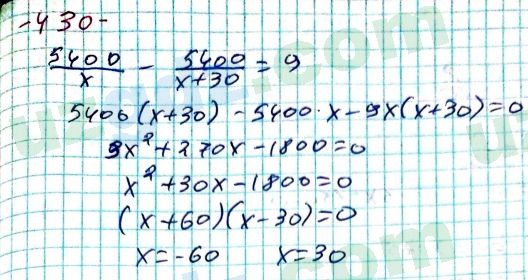 -430-
5400/x - 5400/x+30 = 9
5400(x+30) - 5400·x - 9x(x+30)=0
9x²+270x-1800=0
x²+30x-1800=0
(x+60)(x-30)=0
x=-60 x=30